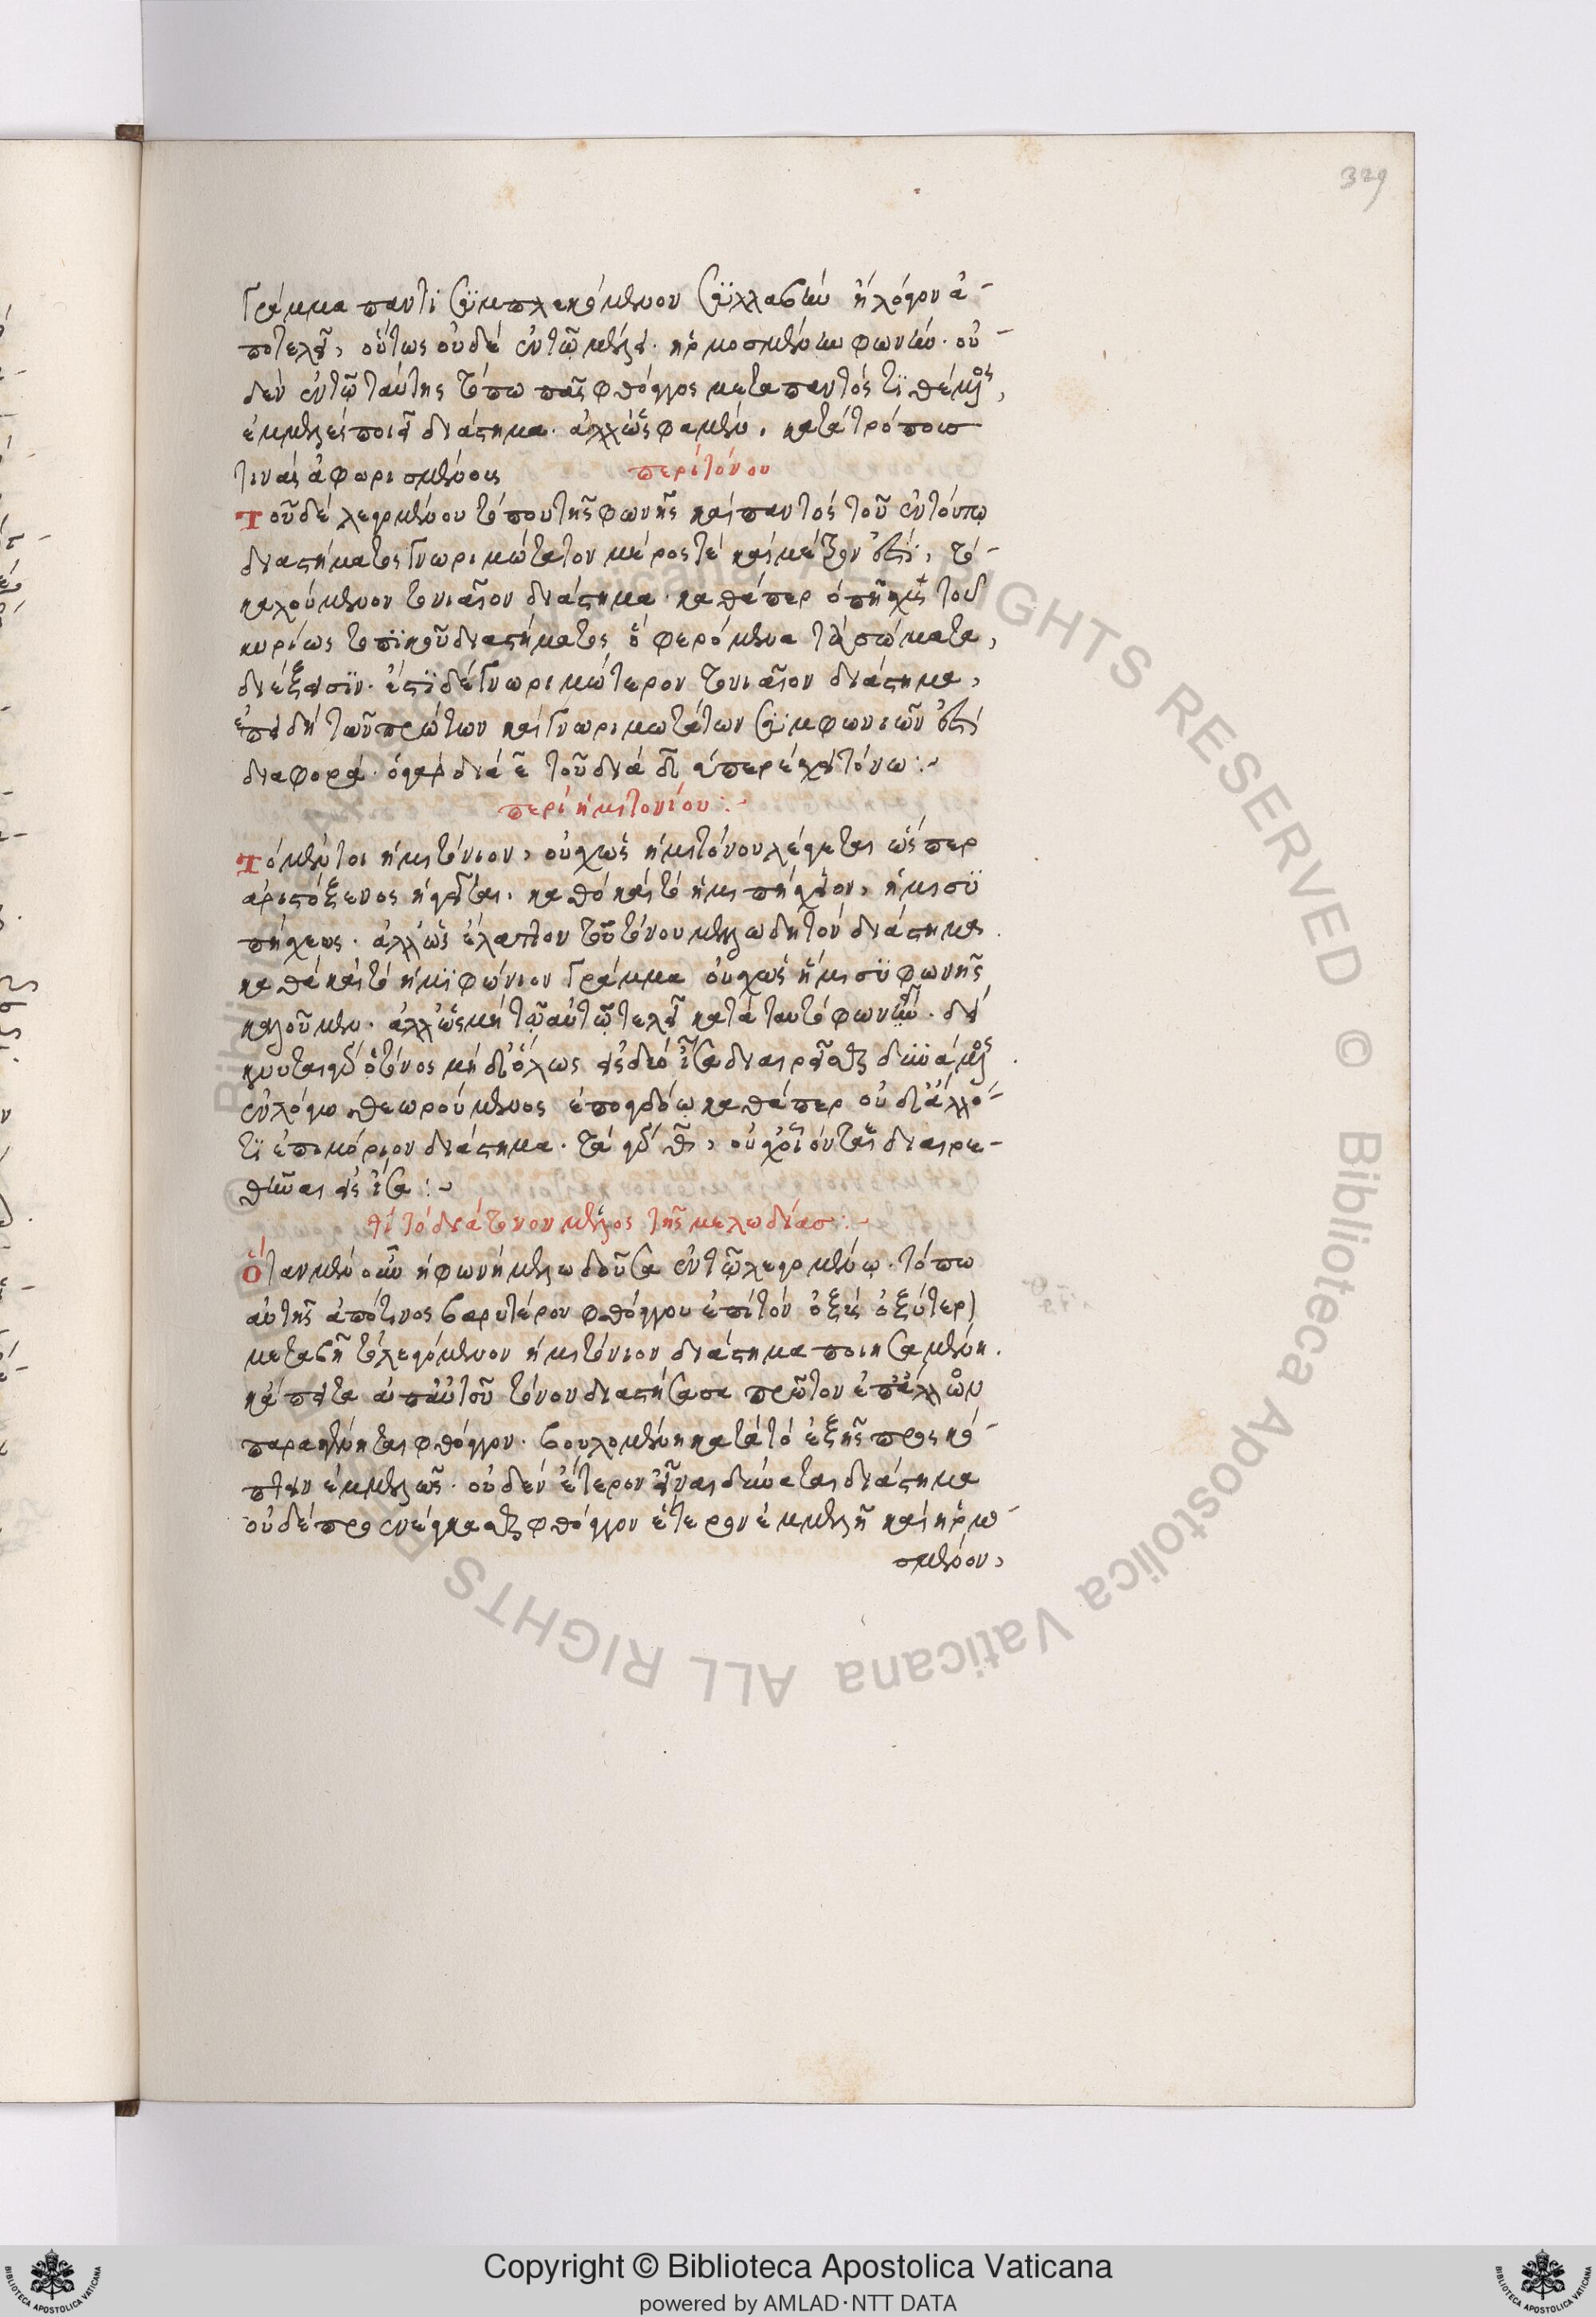 329
Γράμμα παντὶ συμπλεκόμενον συλλαβὴν ἢ λόγον ἀ-
ποτελεῖ, οὕτως οὐδὲ ἐν τῷ μέλει. ἡρμοσμένην φωνὴν. οὐ-
δὲν ἐν τῷ ταύτης τόπω πᾶς φθόγγος μετὰ παντός τιθέμενος,
ἐμμελὲς ποιεῖ διάστημα. ἀλλ' ὥς φαμεν, κατὰ τρόπους
τινὰς ἀφωρισμένους περὶ τόνου
Τοῦ δὲ λεγομένου τόπου τῆς φωνῆς καὶ παντὸς τοῦ ἐν τόπῳ
διαστήματος Γνωριμώτατον μέρος τὲ καὶ μέτρον ἐστὶ, τὸ
καλούμενον τονιαῖον διάστημα. καθάπερ ὁ πῆχυς τοῦ
κυρίως τοπικοῦ διαστήματος ὃ φερόμενα τὰ σώματα,
διέξεισιν. ἐστὶ δὲ Γνωριμώτερον τονιαῖον διάστημα,
ἐπειδὴ τῶν πρώτων καὶ Γνωριμωτάτων συμφωνιῶν ἐστὶ
διαφορά. ὁ γὰρ διὰ ε τοῦ διὰ δ ὑπερέχει τόνω:~
περὶ ἡμιτονίου:~
Τὸ μέντοι ἡμιτόνιον, οὐχ ὡς ἥμισυ τόνου λέγεται ὥσπερ
ἀριστόξενος ἡγεῖται. καθὸ καὶ τὸ ἡμιπήχιον, ἥμισυ
πήχεως. ἀλλ' ὡς ἔλαττον τοῦ τόνου μελωδητὸν διάστημα.
καθὰ καὶ τὸ ἡμίφωνον Γράμμα οὐχ ὡς ἥμισυ φωνῆς
καλοῦμεν. ἀλλ' ὡς μὴ τῷ αὐτῷ τελεῖ κατὰ ταυτὸ φωνὴν. δεί
κνυται γὰρ ὁ τόνος μὴ δι' ὅλως εἰς δύο ἴσα διαιρεῖσθαι δυνάμενος.
ἐν λόγω θεωρούμενος ἐπογδόῳ καθάπερ οὐδ' ἄλλό-
τι ἐπιμόριον διάστημα. τὰ γὰρ θ, οὐχ οἷόν τε διαιρε-
θῆναι εἰς ἴσα:~
τί τὸ διάτονον μέλος τῆς μελωδίας:~
Ὅταν μὲν οὖν ἡ φωνὴ μελωδοῦσα ἐν τῷ λεγομένῳ. τόπω
αὐτῆς ἀπό τινος βαρυτέρου φθόγγου ἐπὶ τὸν ὀξὺς ὀξύτερον
μεταβῆ τὸ λεγόμενον ἡμιτόνιον διάστημα ποιησαμένη.
κἄπειτα ἀπ' αὐτοῦ τόνου διαστήσασα πρῶτον ἐπ' ἄλλον
παραγένηται φθόγγον. βουλομένη κατὰ τὸ ἑξῆς προςκό-
πτειν ἐμμελῶς. οὐδὲν ἕτερον εἶναι δύναται διάστημα
οὐδὲ προςενέγκασθαι φθόγγον ἕτερον ἐμμελῆ καὶ ἡρμο-
σμένον,
Copyright © Biblioteca Apostolica Vaticana
powered by AMLAD·NTT DATA